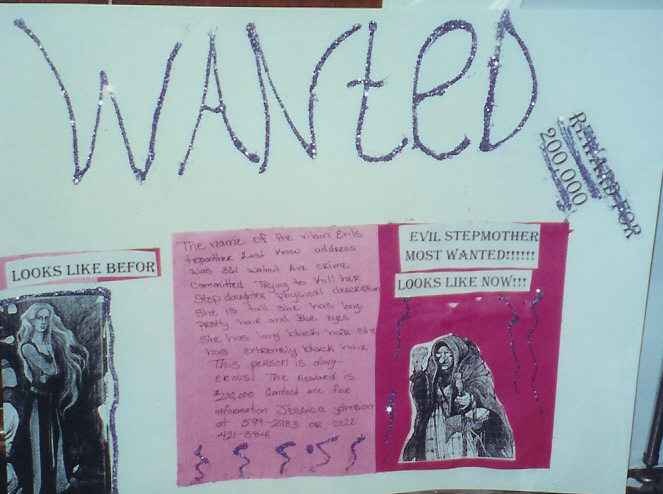 WANteD
REWARD FOR
200,000
LOOKS LIKE BEFOR
EVIL STEPMOTHER
MOST WANTED!!!!!!
LOOKS LIKE NOW!!!
The name of the vilian Evils
tepmother Last Know address
was 361 walnut Ave crime
committed Trying to Kill her
Step daughter physical description
She is tall She has long
Pretty hair and Blue eyes
She has long black hair She
has extremely black hair
This person is dang-
erous! The Reward is
$200,000 Contact me for
information Jessica Johnson
at 599-2983 or cell
421-3841